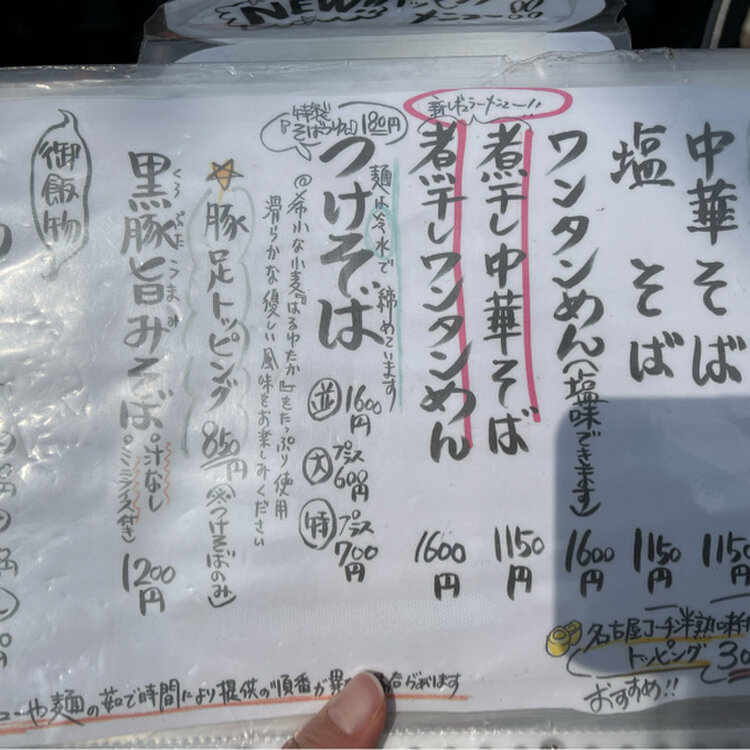 NEW!! トッピング
メニュー
中華そば 1150円
塩そば 1150円
ワンタンめん(塩味できます) 1600円
新レギュラーメニュー!!
煮干し中華そば 1150円
煮干しワンタンめん 1600円
麺は冷水で締めています
つけそば 並 1600円
大 プラス600円
特 プラス700円
特製
『そばつゆ』180円
@希少な小麦『はるゆたか』をたっぷり使用
滑らかな優しい風味をお楽しみください
豚足トッピング 850円(※つけそばのみ)
くろぶた うまみ
黒豚旨みそば 汁なし 1200円
ミニライス付き
御飯物
名古屋コーチン半熟味付
トッピング 30
おすすめ!!
ューや麺の茹で時間により提供の順番が異
おります